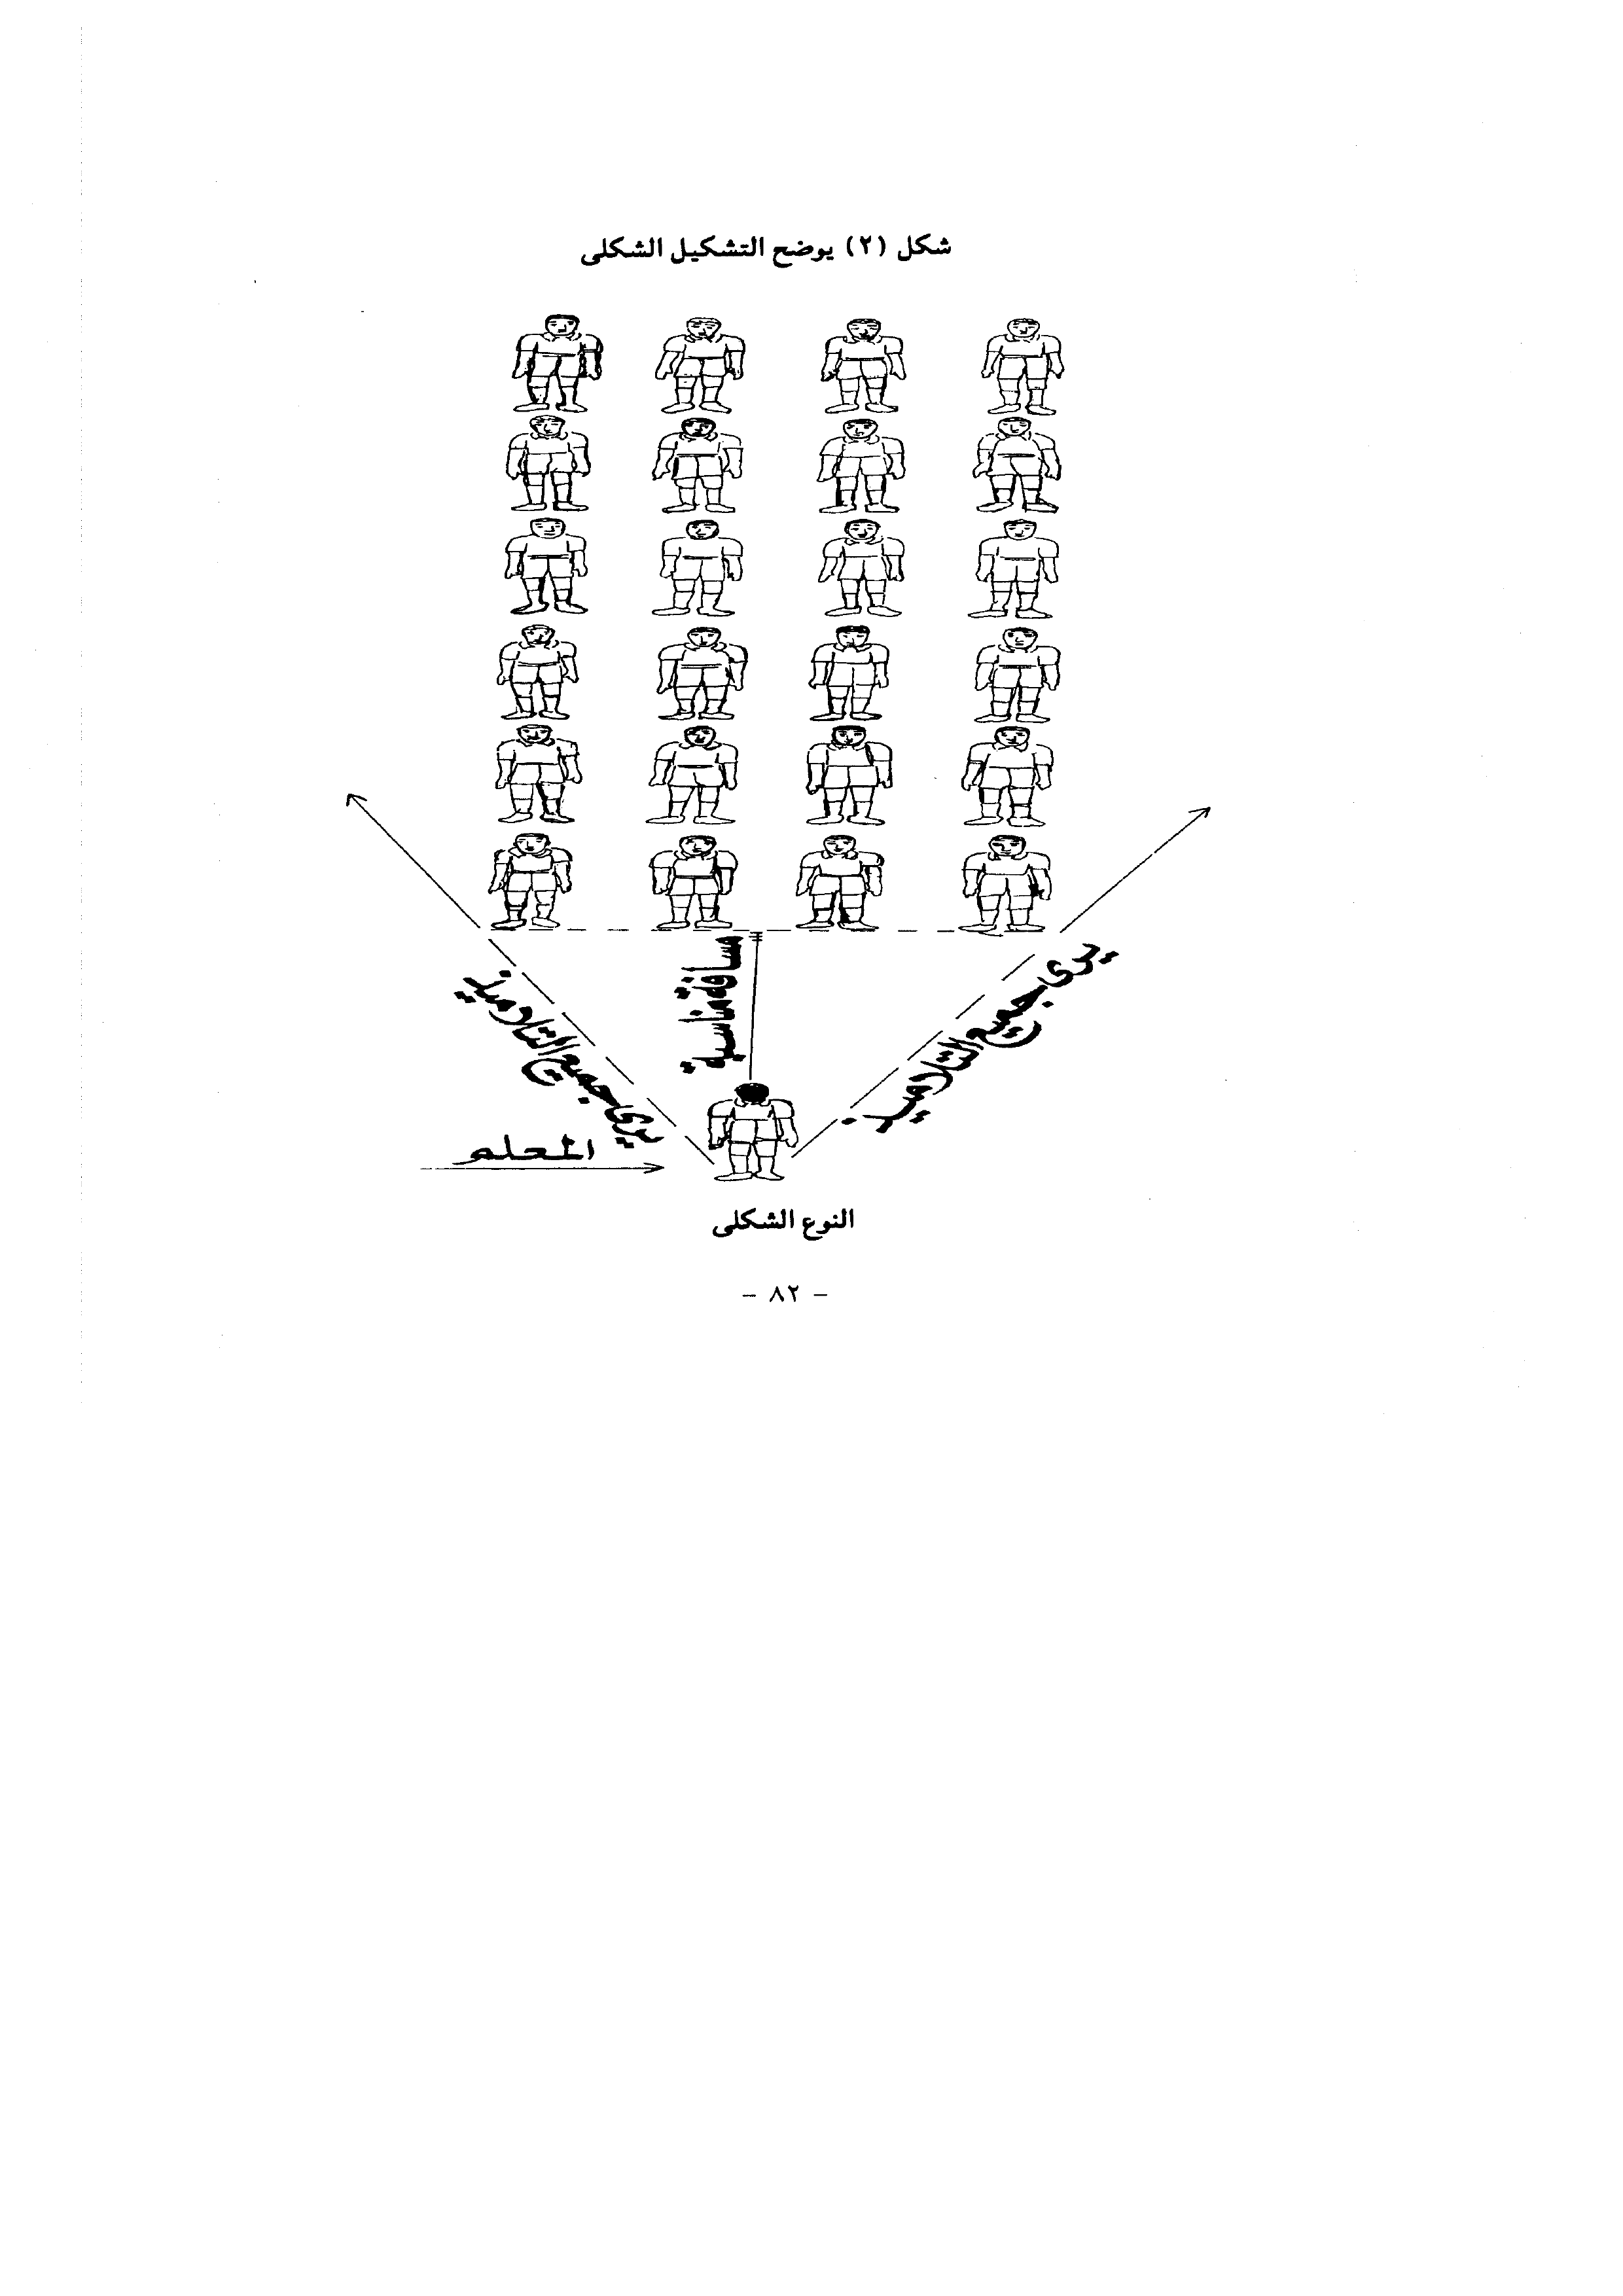 شكل (٢) يوضح التشكيل الشكلى
يرى جميع التلاميذ
مسافة مناسبة
يرى جميع التلاميذ
المعلم
النوع الشكلى
- ٨٢ -